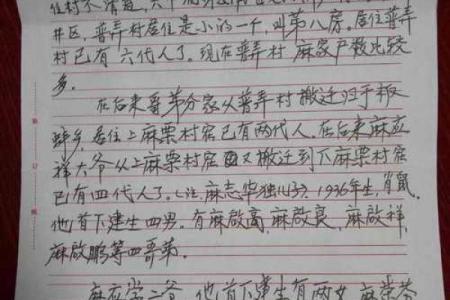 住村不清楚,六个
井区,普弄村居住是小的一个,叫第八房。居住普弄
村已有六代人了。现在普弄村麻家户数比较
多。
在后来哥弟分家从普弄村搬迁归于板
蚌乡,居住上麻栗村宿已有两代人。在后来麻应
祥大爷从上麻栗村宿又搬迁到下麻栗村宿
已有四代人了。(注,麻志华独儿子)、1936年生,肖鼠.
他首下建生四男。有麻啟高,麻啟良,麻啟祥,
麻啟鹏等四哥弟。
麻应学二爷,他首下建生有两女,麻